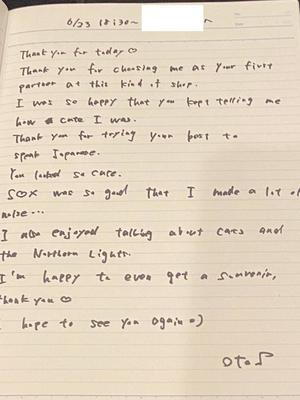 6/23 18:30~
Thank you for today♡
Thank you for choosing me as your first
partner at this kind of shop.
I was so happy that you kept telling me
how cute I was.
Thank you for trying your best to
speak Japanese.
You looked so cute.
S♡X was so good that I made a lot of
noise...
I also enjoyed talking about cats and
the Northern Lights.
I'm happy to even get a souvenir,
thank you♡
I hope to see you again =)